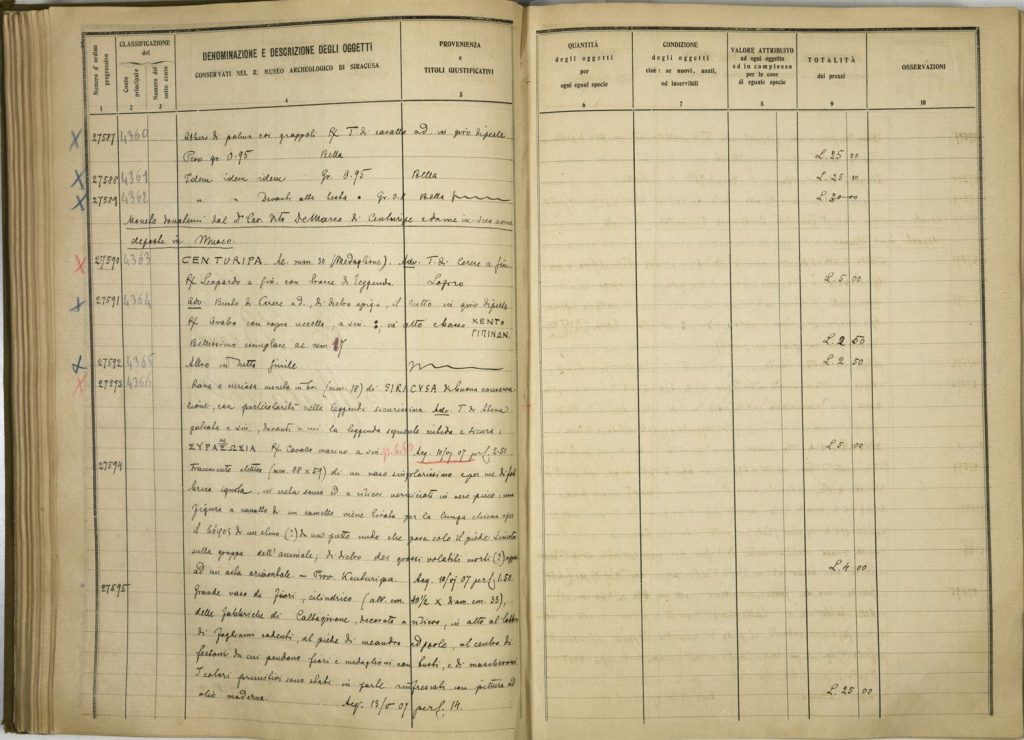 Numero d'ordine progressivo
CLASSIFICAZIONE del
Conto principale
Numero del sotto conto
DENOMINAZIONE E DESCRIZIONE DEGLI OGGETTI
CONSERVATI NEL R. MUSEO ARCHEOLOGICO DI SIRACUSA
PROVENIENZA
e
TITOLI GIUSTIFICATIVI
1 2 3 4 5
27587 4360 Albero di palma con grappoli R/ T. di cavallo ad. in giro di perle
Peso gr. 0.95 Bella
27588 4361 Idem idem idem Gr. 0.95 Bella
27589 4362 " " Davanti alla testa • Gr. 0.8 Bella
Monete donatemi dal Dr Cav. Vito De Marco di Centuripe e da me in suo nome
deposte in Museo.
27590 4363 CENTURIPA. Ae mm. 30 (Medaglione). Adv. T. di Cerere a sin.
R/ Leopardo a sin. con tracce di leggenda Logoro
27591 4364 Adv. Busto di Cerere ad., di dietro spiga, il tutto in giro di perle
R/ Aratro con sopra uccello, a sin. :, in alto a mano ΚΕΝΤΟ
ΡΙΠΙΝΩΝ.
Bellissimo esemplare ae. mm. 17
27592 4365 Altro in tutto simile
27593 4366 Rara e curiosa moneta in br. (mm. 18) di SIRACUSA di buona conserva-
zione, con particolarità nella leggenda sicurissima. Adv. T. di Atena
galeata a sin., davanti a cui la leggenda seguente nitida e sicura:
R/ Cavallo marino a sin. Acq. 10/VI 07 per £. 2.50.
27594 Frammento elittico (mm. 88 x 59) di un vaso singolarissimo e per me di fab-
brica ignota, in creta sana ed a rilievi verniciati in nero piceo: una
figura a cavallo di un camello viene tirata per la lunga chioma
il λόφος di un elmo (?) da un putto nudo che posa solo il piede sinistro
sulla groppa dell'animale; di dietro due grossi volatili morti (?)
ad un asta orizzontale. – Prov. Kenturipa. Acq. 10/VI 07 per £. 1.50.
27595 Grande vaso da fiori, cilindrico (alt. cm. 40 1/2 x diam. cm. 33),
delle fabbriche di Caltagirone, decorato a rilievo, in alto al labbro
di fogliami cadenti, al piede di meandro ed ovole, al centro di
festoni da cui pendono fiori e medaglioni con busti, e di mascheroni.
I colori primitivi sono stati in parte rinfrescati con pittura ad
olio moderna. Acq. 13/V 07 per £. 14.
QUANTITÀ
degli oggetti
per
ogni egual specie
CONDIZIONE
degli oggetti
cioè: se nuovi, usati,
od inservibili
VALORE ATTRIBUITO
ad ogni oggetto
ed in complesso
per le cose
di eguale specie
TOTALITÀ
dei prezzi
OSSERVAZIONI
6 7 8 9 10
L. 25 00
L. 25 00
L. 20 00
L. 5 00
L. 2 50
L. 2 50
L. 5 00
L. 4 00
L. 25 00